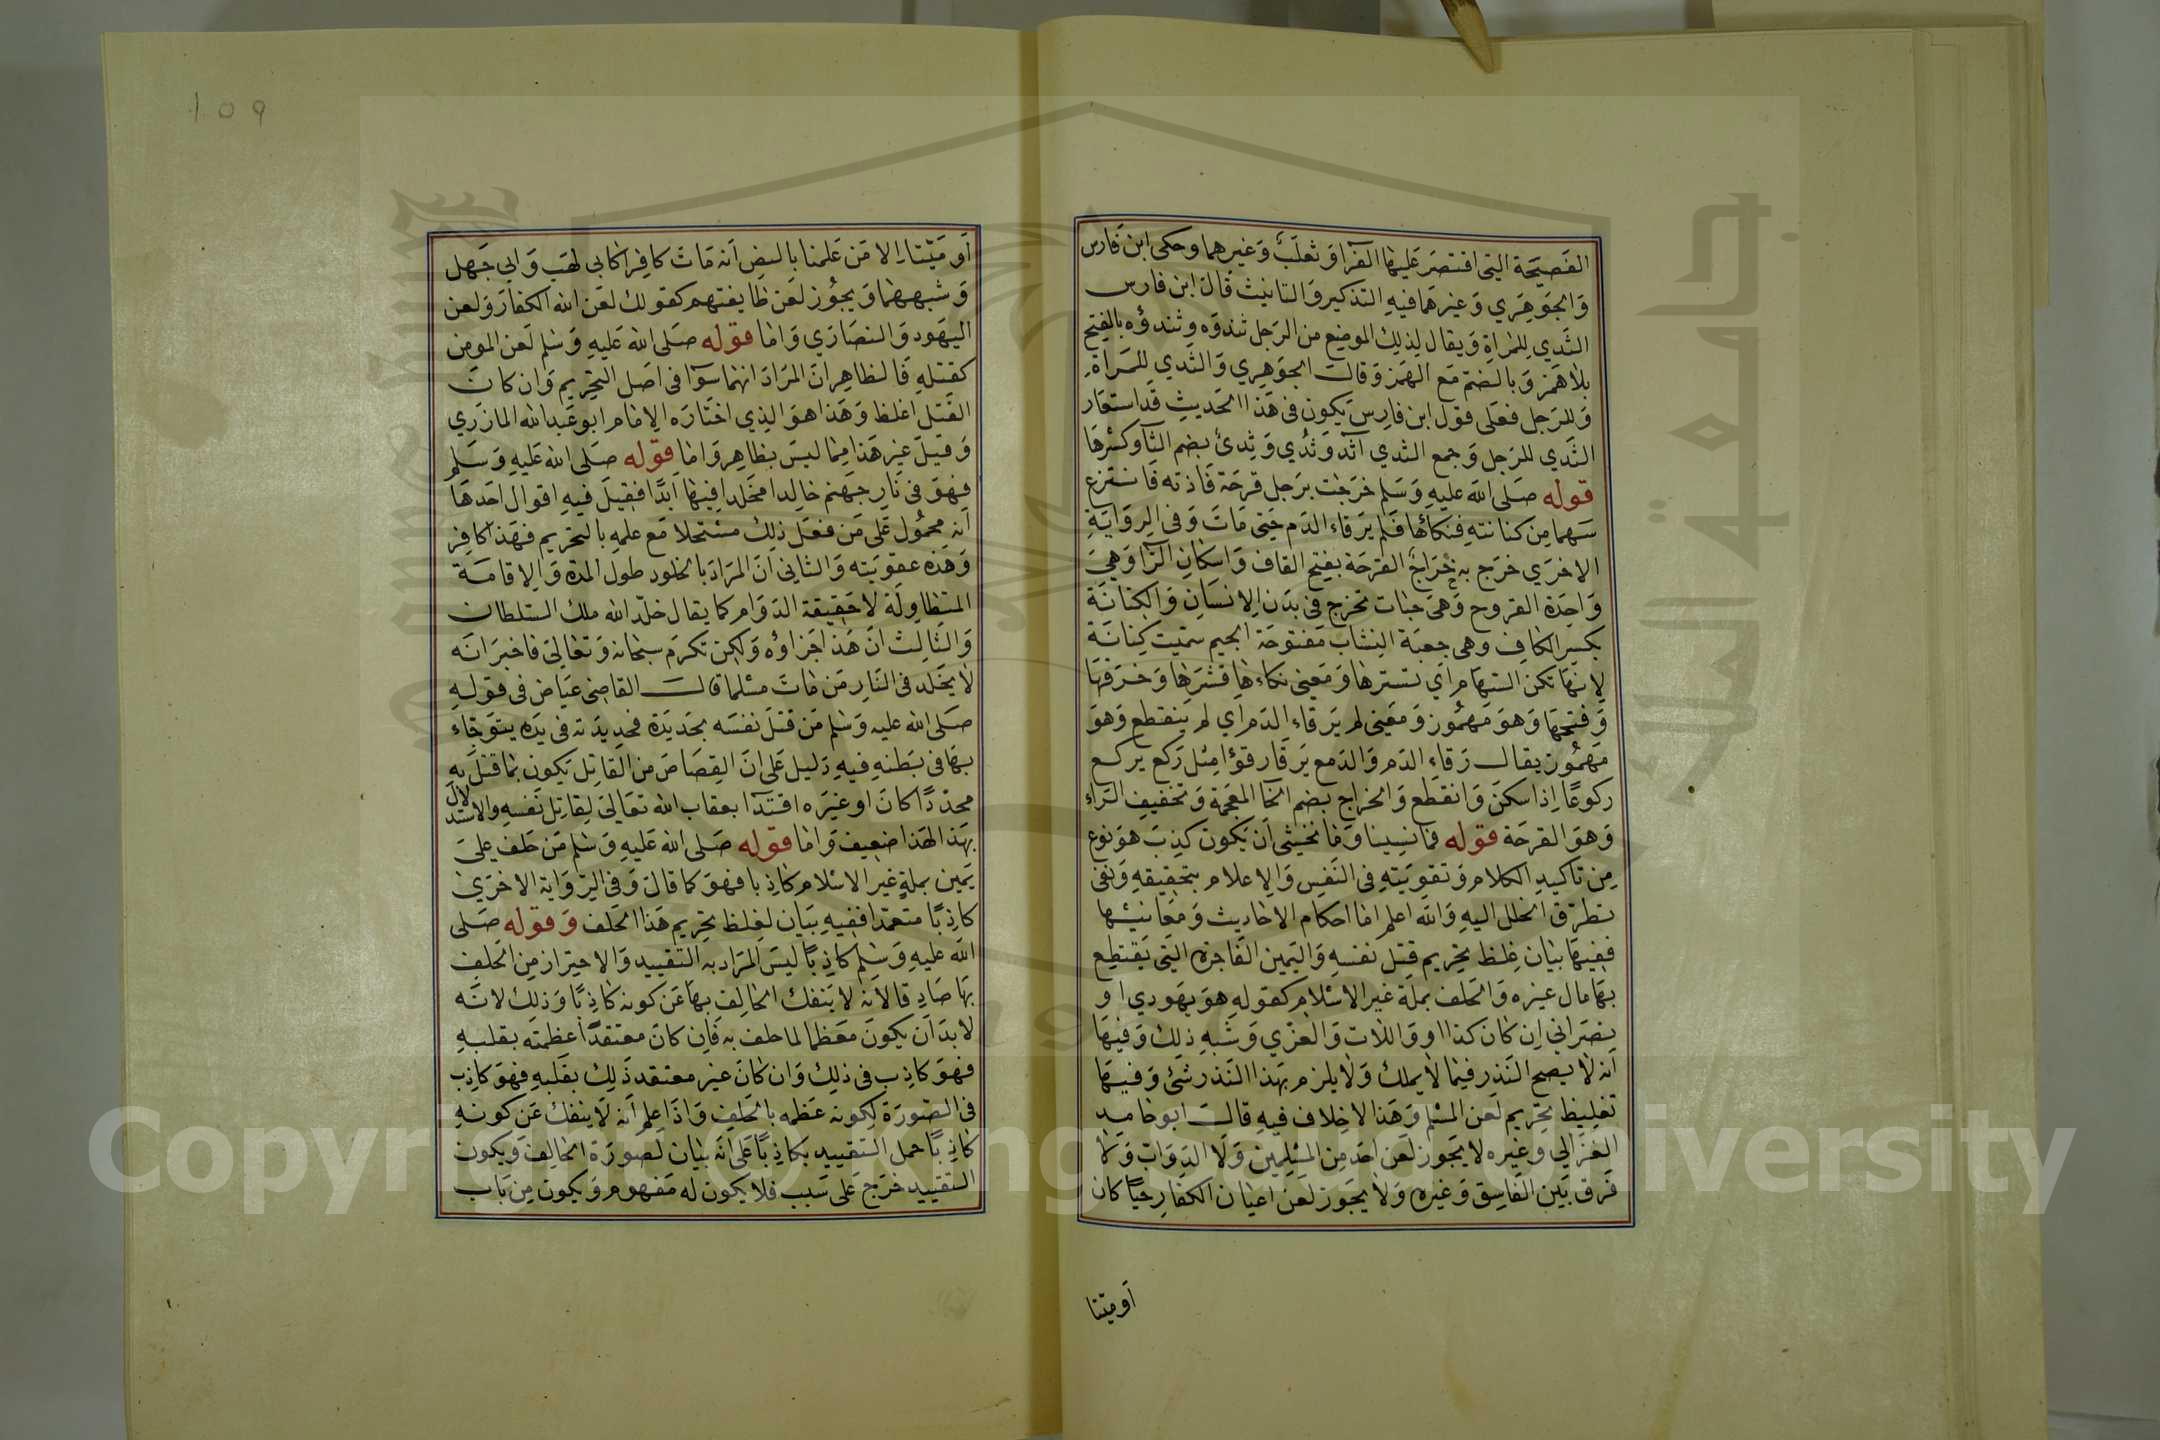 الفصيحة التي اقتصر عليها الفرا وثعلب وغيرهما وحكى ابن فارس
والجوهري وغيرهما فيه التذكير والتانيث قال ابن فارس
الثدي للمراة ويقال لذلك الموضع من الرجل ثندوه وثندؤه بالفتح
بلا همز وبالضم مع الهمز وقال الجوهري والثدي للمراة
وللرجل فعلى قول ابن فارس يكون في هذا الحديث قد استعار
الثدي للرجل وجمع الثدي اثد وثدي وثدى بضم الثا وكسرها
قوله صلى الله عليه وسلم خرجت برجل قرحة فاذته فانتزع
سهما من كنانته فنكاها فلم يرقاء الدم حتى مات وفي الرواية
الاخرى خرج به خراج القرحة بفتح القاف واسكان الرا وهي
واحدة القروح وهي حبات تخرج في بدن الانسان والكنانة
بكسر الكاف وهي جعبة النشاب مفتوحة الجيم سميت كنانة
لانها تكن السهام اي تسترها ومعنى نكاءها قشرها وخرقها
وفتحها وهو مهموز ومعنى لم يرقاء الدم اي لم ينقطع وهو
مهموز يقال رقاء الدم والدمع يرقا رقوا مثل ركع يركع
ركوعا اذا سكن وانقطع والخراج بضم الخا المعجمة وتخفيف الراء
وهو القرحة قوله فما نسينا وما نخشى ان يكون كذب هو نوع
من تاكيد الكلام وتقويته في النفس والاعلام بتحقيقه ونفى
تطرق الخلل اليه والله اعلم اما احكام الاحاديث ومعانيها
ففيها بيان غلظ تحريم قتل نفسه واليمين الفاجرة التي يقتطع
بها مال غيره والحلف بملة غير الاسلام كقوله هو يهودي او
نصراني ان كان كذا او واللات والعزى وشبه ذلك وفيها
انه لا يصح النذر فيما لا يملك ولا يلزم بهذا النذر شئ وفيها
تغليظ تحريم لعن المسلم وهذا لا خلاف فيه قال ابو حامد
الغزالي وغيره لا يجوز لعن احد من المسلمين ولا الدواب ولا
فرق بين الفاسق وغيره ولا يجوز لعن اعيان الكفار حيا كان
او ميتا
109
او ميتا الا من علمنا بالنص انه مات كافرا كابي لهب وابي جهل
وشبههما ويجوز لعن طايفتهم كقولك لعن الله الكفار ولعن
اليهود والنصارى واما قوله صلى الله عليه وسلم لعن المومن
كقتله فالظاهر ان المراد انهما سوا في اصل التحريم وان كان
القتل اغلظ وهذا هو الذي اختاره الامام ابو عبدالله المازري
وقيل غير هذا مما ليس بظاهر واما قوله صلى الله عليه وسلم
فهو في نار جهنم خالدا مخلدا فيها ابدا فقيل فيه اقوال احدها
انه محمول على من فعل ذلك مستحلا مع علمه بالتحريم فهذا كافر
وهذه عقوبته والثاني ان المراد بالخلود طول المدة والاقامة
المتطاولة لا حقيقة الدوام كما يقال خلد الله ملك السلطان
والثالث ان هذا جزاوه ولكن تكرم سبحانه وتعالى فاخبر انه
لا يخلد في النار من مات مسلما قال القاضي عياض في قوله
صلى الله عليه وسلم من قتل نفسه بحديدة فحديدته في يده يتوجاء
بها في بطنه فيه دليل على ان القصاص من القاتل يكون بما قتل به
محددا كان او غيره اقتدا بعقاب الله تعالى لقاتل نفسه والاستدلال
بهذا لهذا ضعيف واما قوله صلى الله عليه وسلم من حلف على
يمين بملة غير الاسلام كاذبا فهو كما قال وفي الرواية الاخرى
كاذبا متعمدا ففيه بيان لغلظ تحريم هذا الحلف وقوله صلى
الله عليه وسلم كاذبا ليس المراد به التقييد والاحتراز من الحلف
بها صادقا لانه لا ينفك الحالف بها عن كونه كاذبا وذلك لانه
لا بد ان يكون معظما لما حلف به فان كان معتقدا عظمته بقلبه
فهو كاذب في ذلك وان كان غير معتقد ذلك بقلبه فهو كاذب
في الصورة لكونه عظمه بالحلف واذا علم انه لا ينفك عن كونه
كاذبا حمل التقييد بكاذبا على انه بيان لصورة الحالف ويكون
التقييد خرج على سبب فلا يكون له مفهوم ويكون من باب